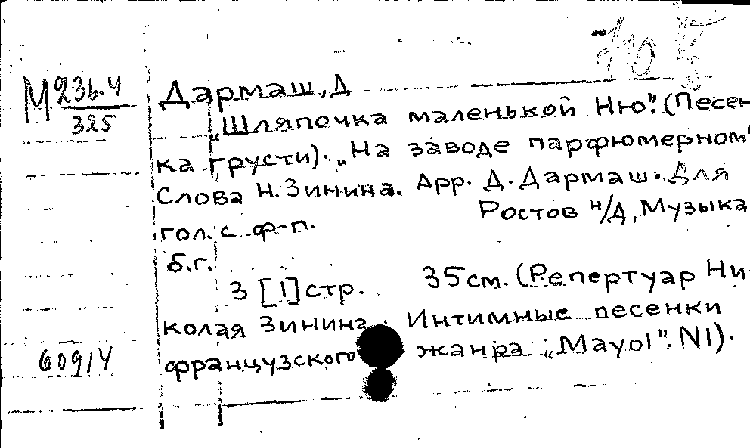 М 236.4
325
Дармаш, Д
„Шляпочка маленькой Ню". (Песен-
ка грусти). „На заводе парфюмерном"
Слова Н. Зинина. Арр. Д. Дармаш. Для
гол. с ф-п. Ростов н/Д, Музыка
б.г.
3 [1] стр. 35 см. (Репертуар Ни-
колая Зинина. Интимные песенки
609/4 французского жанра „Mayol". N1).